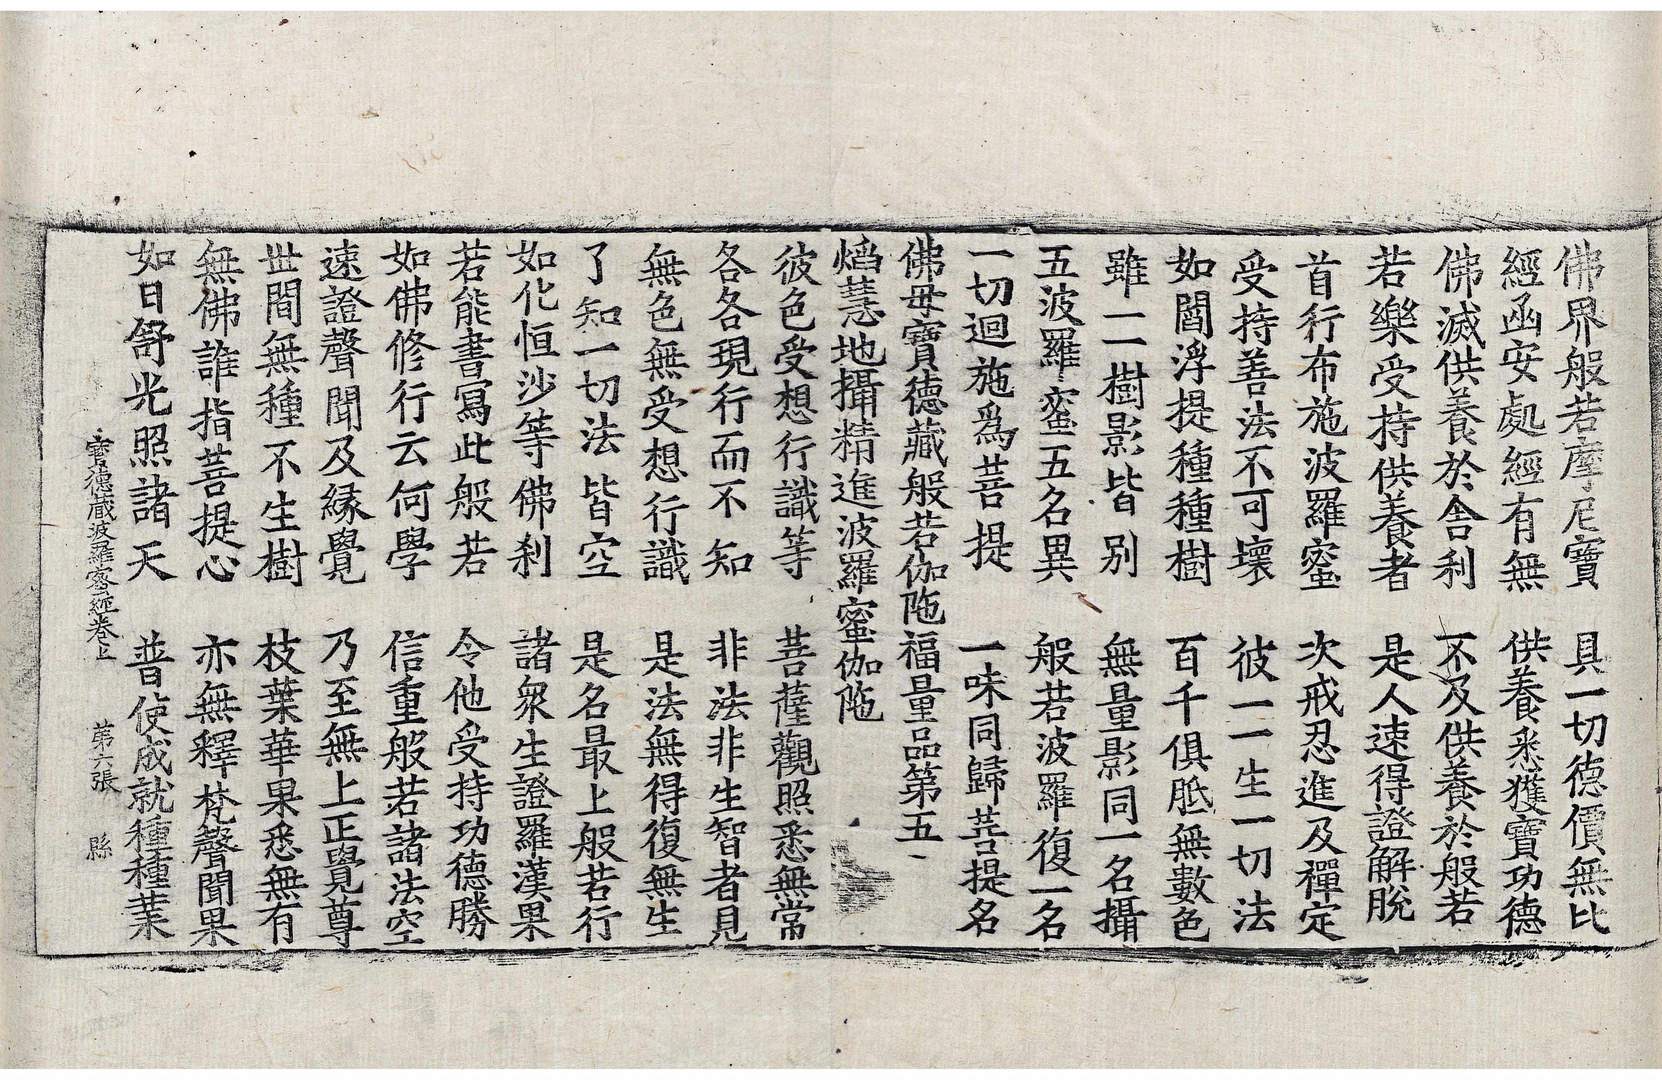 佛界般若摩尼寶　具一切德價無比
經函安處經有無　供養悉獲寶功德
佛滅供養於舎利　不及供養於般若
若樂受持供養者　是人速得證解脫
首行布施波羅蜜　次戒忍進及禪定
受持善法不可壞　彼一一生一切法
如閻浮提種種樹　百千俱胝無數色
雖一一樹影皆別　無量影同一名攝
五波羅蜜五名異　般若波羅復一名
一切迴施爲菩提　一味同歸菩提名
佛母寶德藏般若伽陁福量品第五
焰慧地攝精進波羅蜜伽陁
彼色受想行識等　菩薩觀照悉無常
各各現行而不知　非法非生智者見
無色無受想行識　是法無得復無生
了知一切法皆空　是名最上般若行
如化恒沙等佛刹　諸衆生證羅漢果
若能書寫此般若　令他受持功德勝
如佛修行云何學　信重般若諸法空
速證聲聞及緣覺　乃至無上正覺尊
世間無種不生樹　枝葉華果悉無有
無佛誰指菩提心　亦無釋梵聲聞果
如日舒光照諸天　普使成就種種業
寶德藏波羅蜜經卷上　第六張　縣